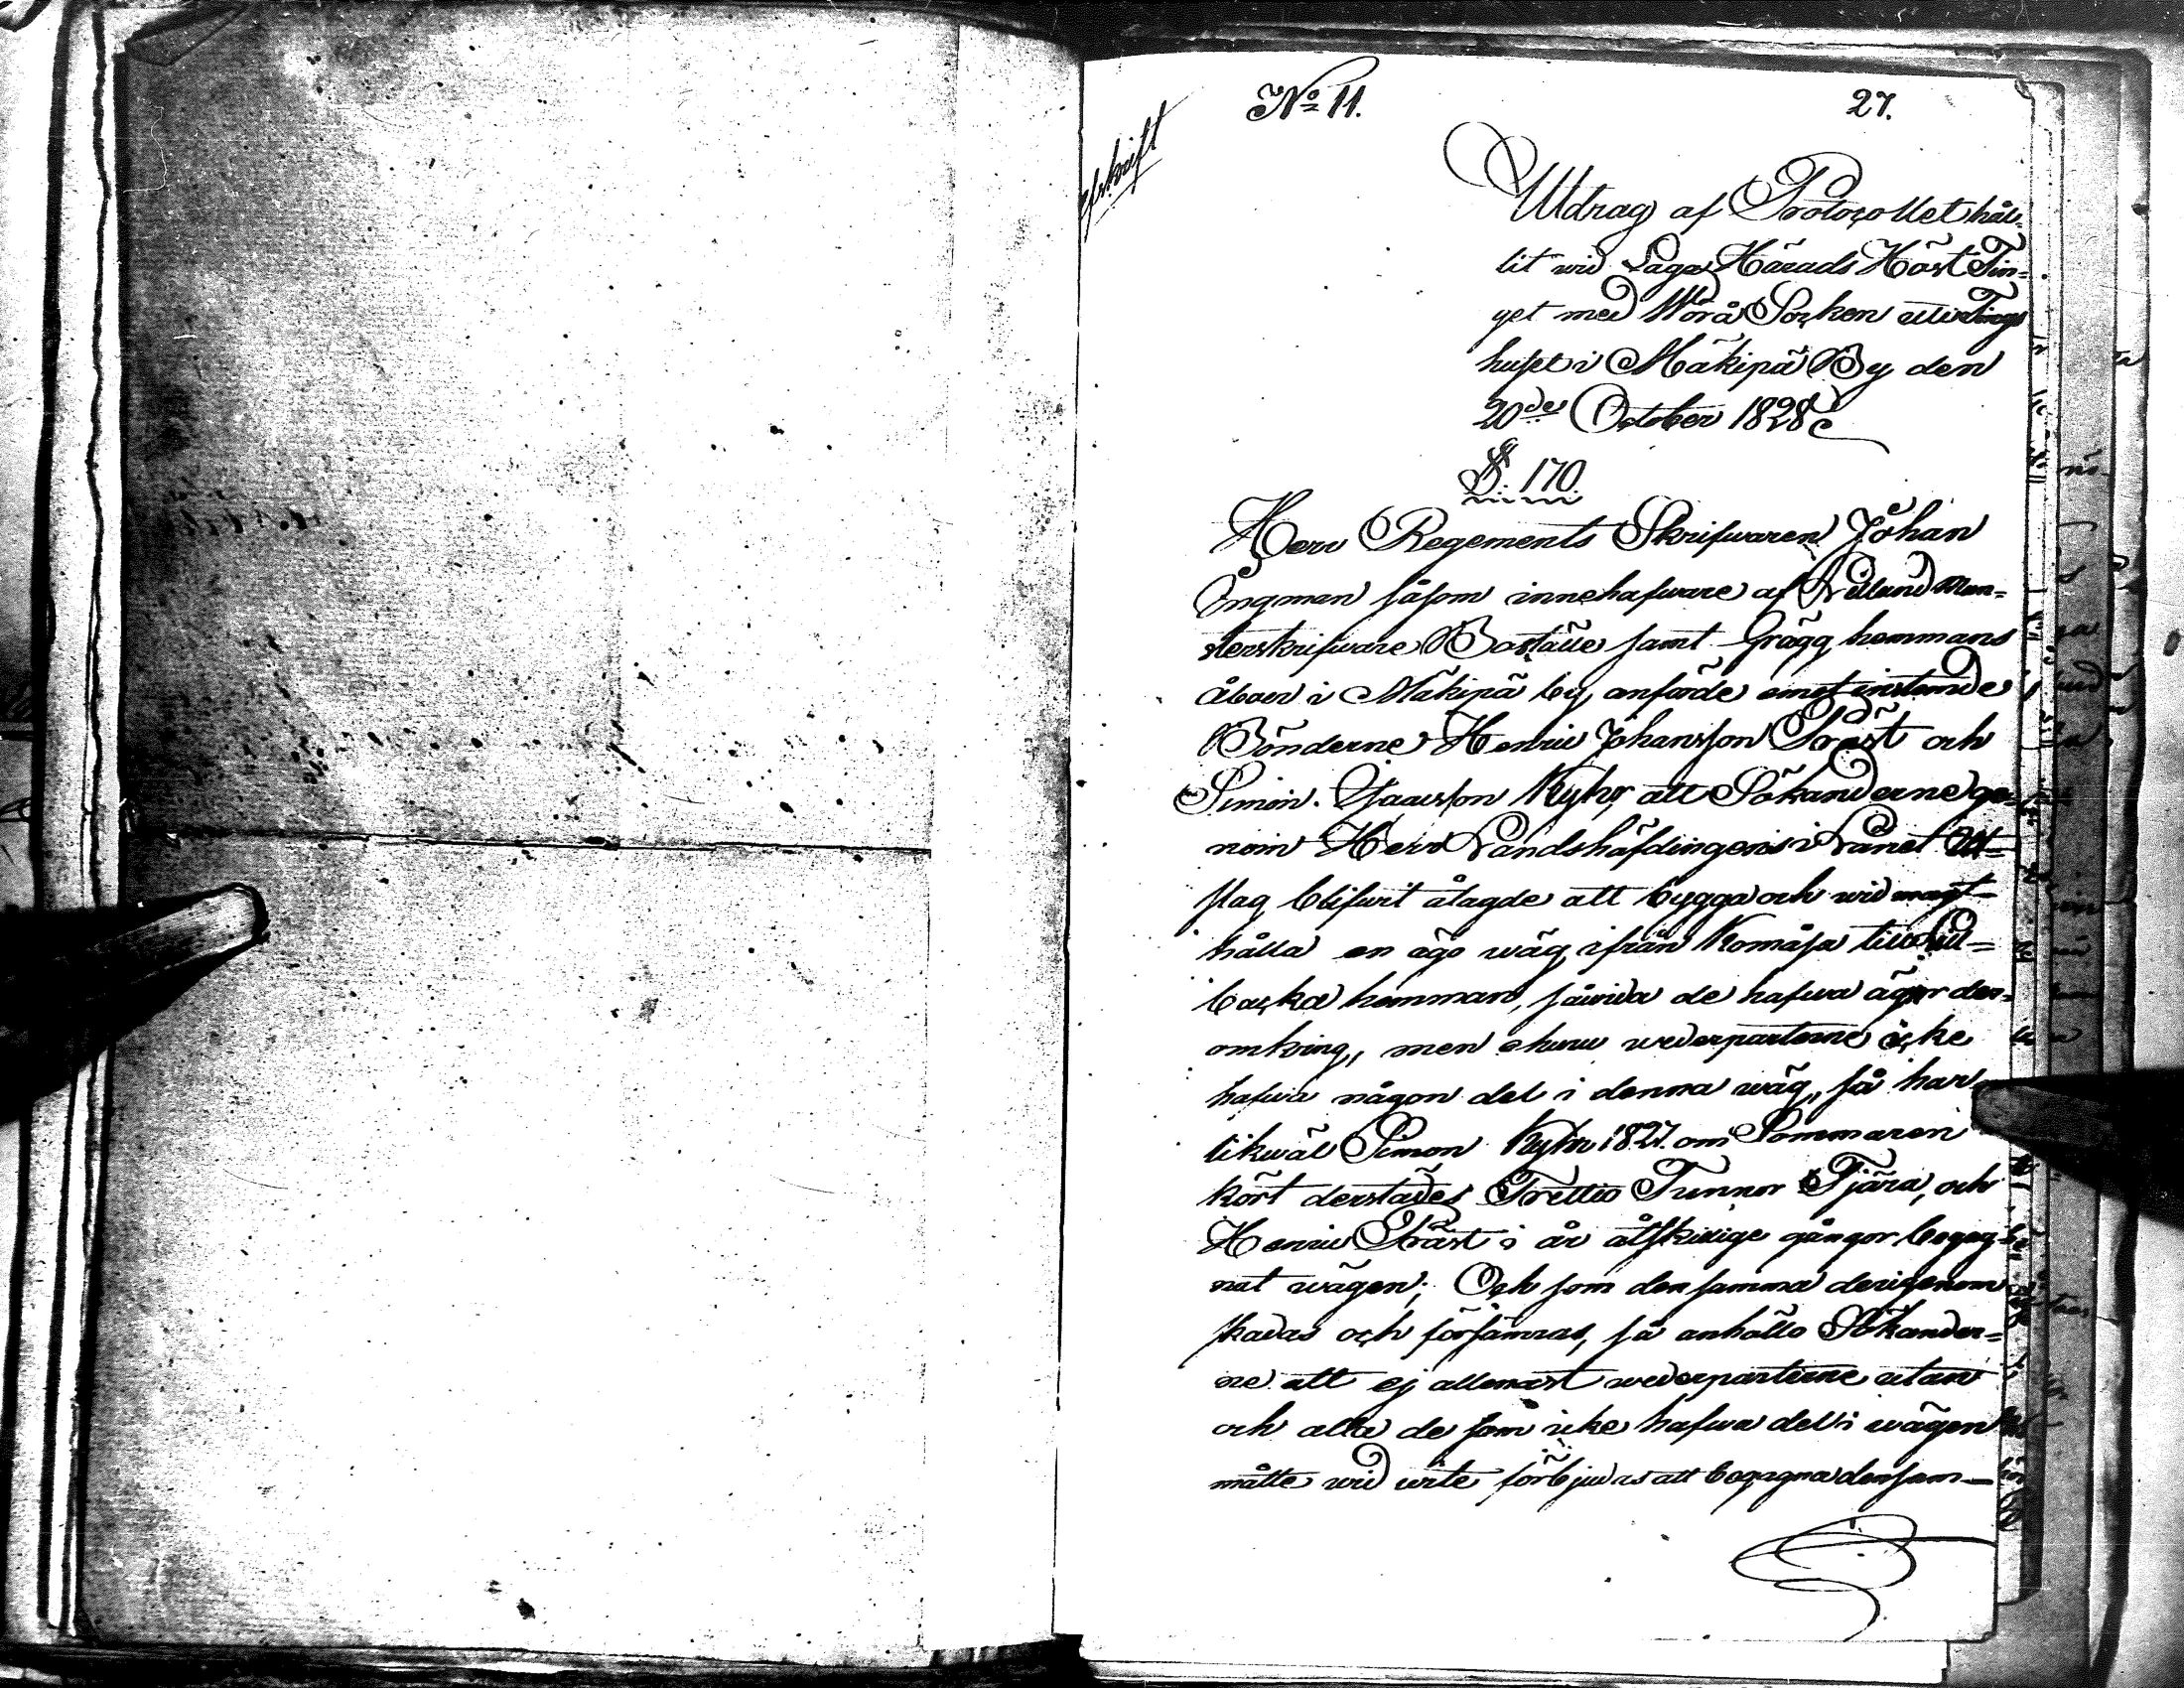 No 11. 27.
Afskrift
Utdrag af Protocollet hål-
lit wid Laga Härads Höst Tin-
get med Wörå Socken uti Tings
huset i Mäkipä By den
20de October 1828
§. 170.
Herr Regements Skrifwaren Johan
Ingman såsom innehafware af Nilland Mön-
sterskrifware Boställe samt Grägg hemmans
åboer i Mäkipä by, anförde emot instämde
Bönderne Henric Johansson Präst och
Simon Isaacsson Kyhr, att Sökanderne ge-
nom Herr Landshöfdingens i Länet Ut-
slag blifwit ålagde att bygga och wid magt-
hålla en ägo wäg ifrån Komåsa till
backa hemman, såwida de hafwa ägor der-
omkring, men ehuru wederparterne icke
hafwa någon del i denna wäg, så har
likwäl Simon Kyhr 1827 om Sommaren
kört derstädes Trettio Tunnor Tjära, och
Henric Präst i år åtskillige gångor begag-
nat wägen; Och som den samma derigenom
skadas och försämras, så anhöllo Sökander-
ne att ej allenast wederparterne utan
och alla de som icke hafwa del i wägen
måtte wid wite förbjudas att begagna densam-